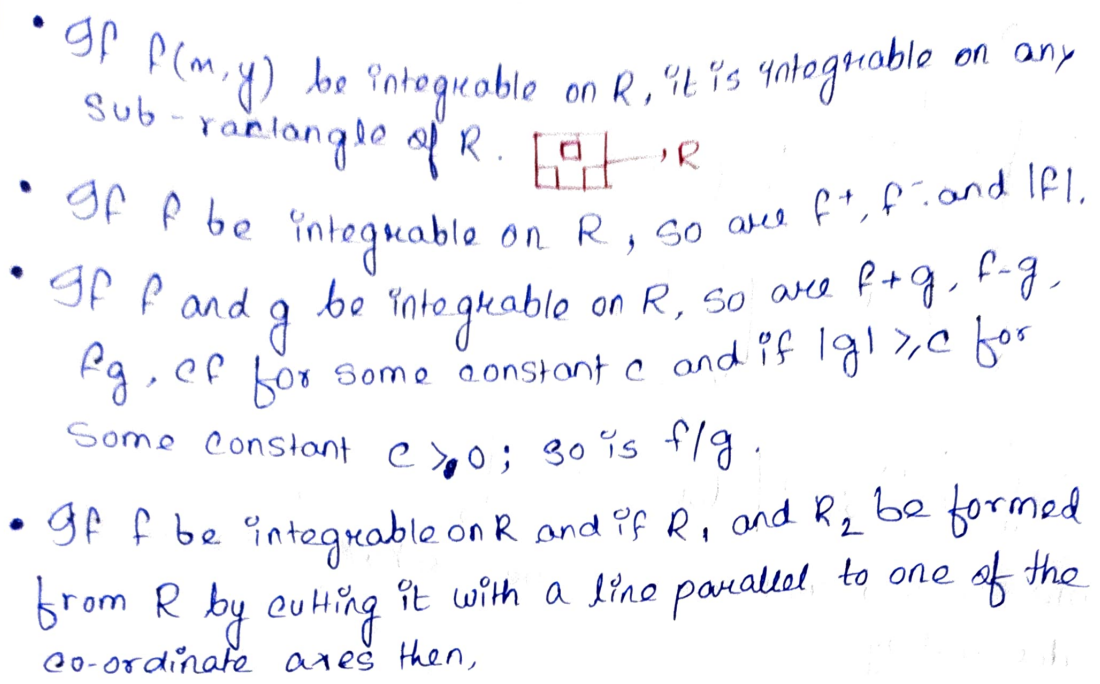 • If f(x,y) be integrable on R, it is integrable on any
sub-rectangle of R. → R
• If f be integrable on R, so are f⁺, f⁻ and |f|.
• If f and g be integrable on R, so are f+g, f-g,
fg, cf for some constant c and if |g| ≥ c for
some constant c > 0; so is f/g.
• If f be integrable on R and if R₁ and R₂ be formed
from R by cutting it with a line parallel to one of the
co-ordinate axes then,